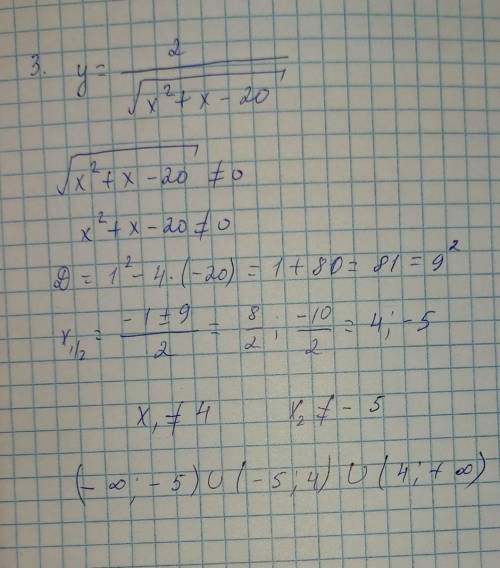 3. y = 2 / √(x² + x - 20)
√(x² + x - 20) ≠ 0
x² + x - 20 ≠ 0
D = 1² - 4·(-20) = 1 + 80 = 81 = 9²
x₁/₂ = (-1 ± 9) / 2 = 8/2 ; -10/2 = 4 ; -5
x₁ ≠ 4 x₂ ≠ -5
(-∞; -5) ∪ (-5; 4) ∪ (4; +∞)